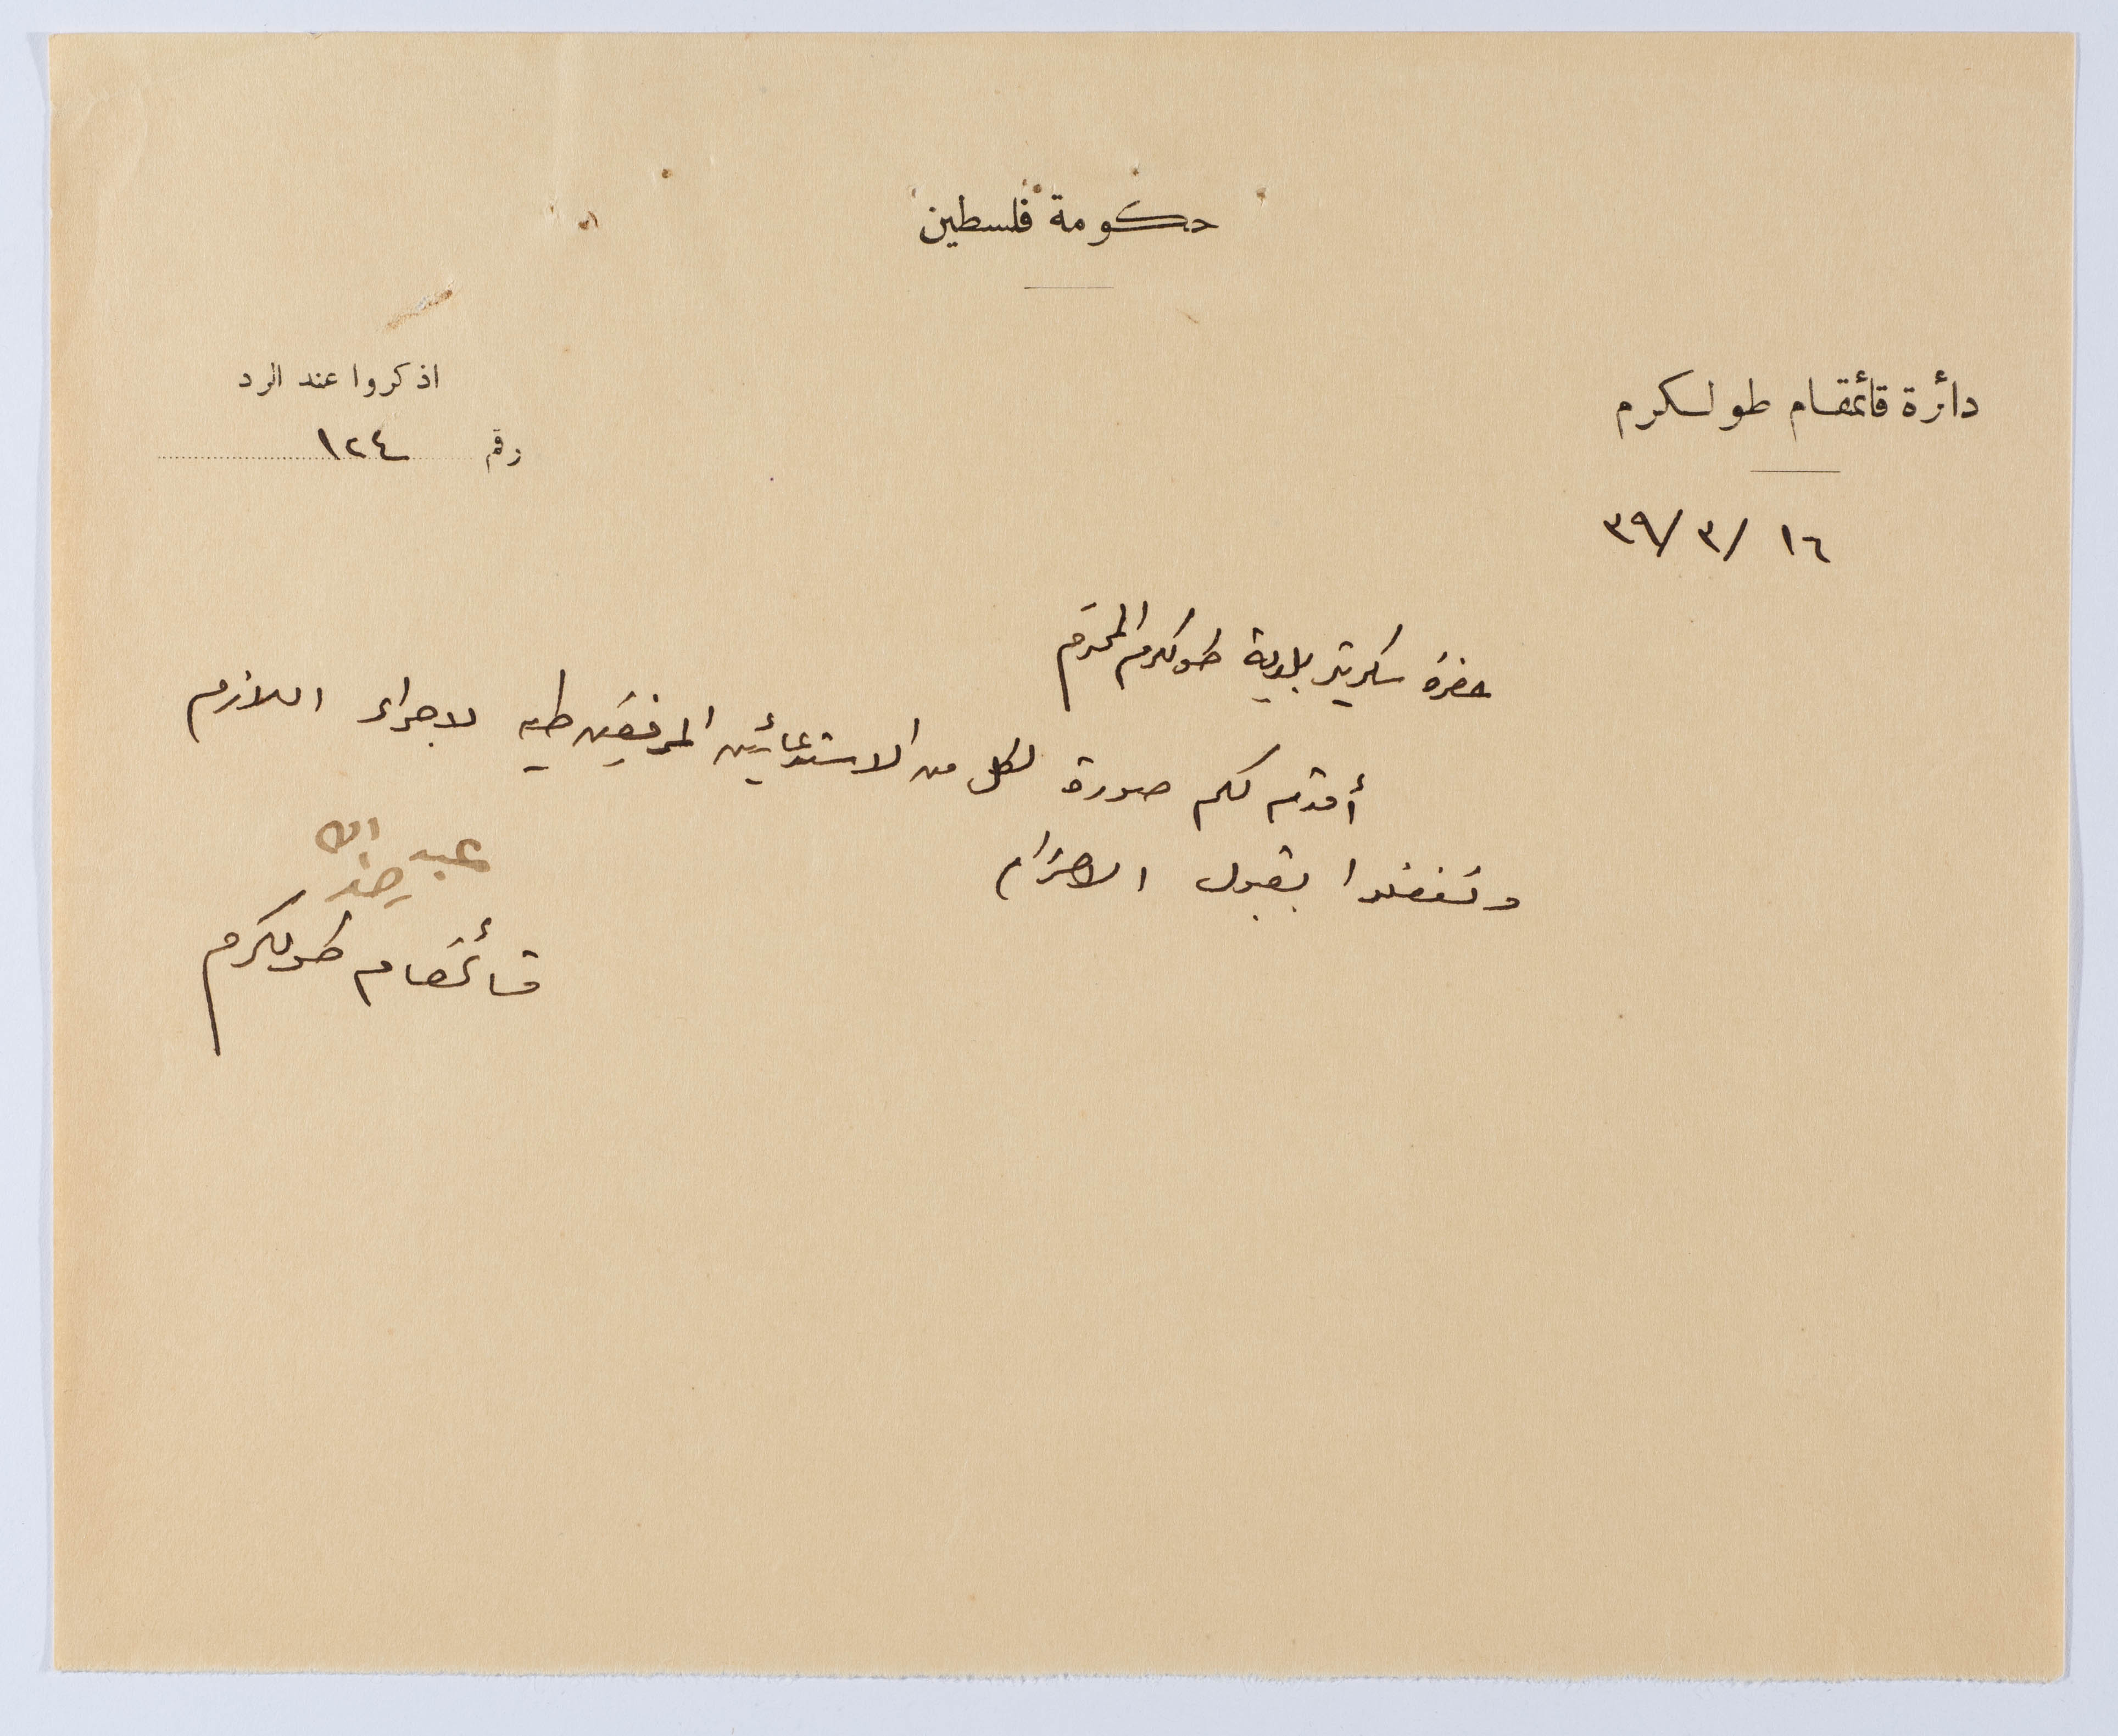 حكومة فلسطين
دائرة قائمقام طولكرم
اذكروا عند الرد
رقم ١٢٤
١٦ /٣ /٣٩
حضرة سكرتير بلدية طولكرم المحترم
أقدم لكم صورة لكل من الاستدعائين المرفقين طيه لاجراء اللازم
وتفضلوا بقبول الاحترام
عبد الله
قائمقام طولكرم